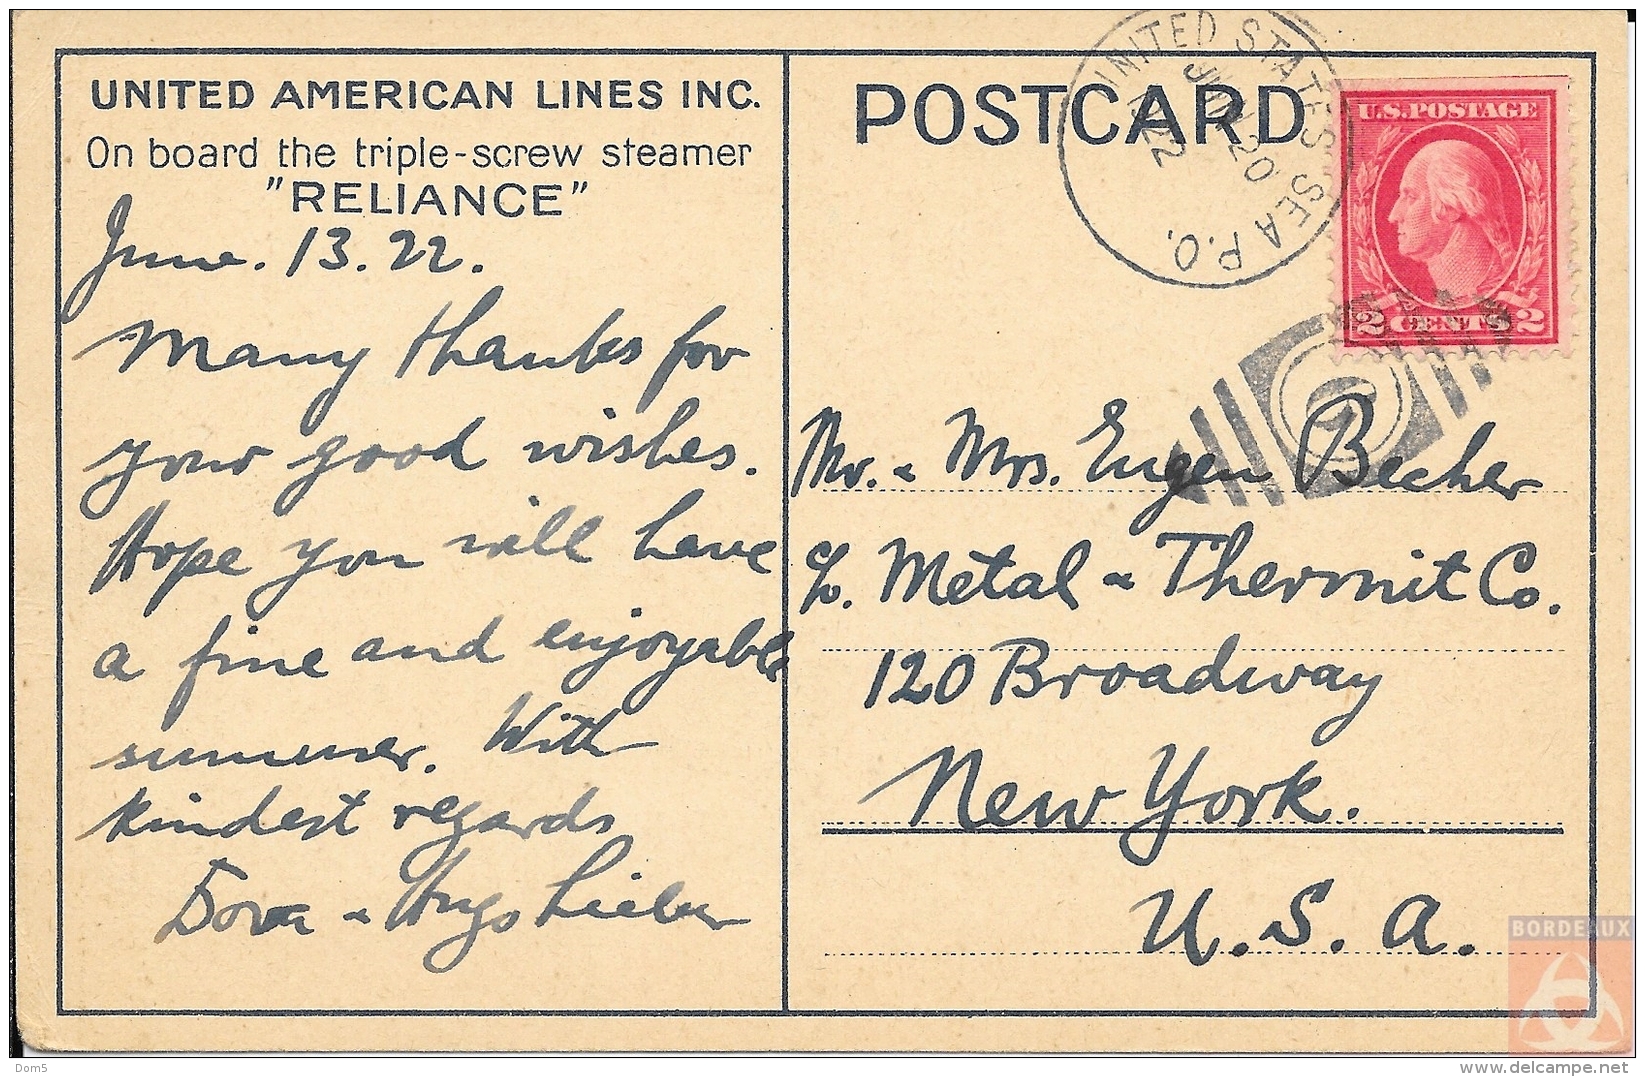 UNITED AMERICAN LINES INC.
On board the triple-screw steamer
"RELIANCE"
June. 13. 22.
Many thanks for
your good wishes.
Hope you will have
a fine and enjoyable
summer. With
kindest regards
Dora & Hugo Lieber
POSTCARD
UNITED STATES SEA P.O.
JUN 20
1922
U.S. POSTAGE
2 CENTS 2
Mr. & Mrs. Eugen Becher
c/o. Metal & Thermit Co.
120 Broadway
New York.
U. S. A.
BORDEAUX
Dom5
www.delcampe.net